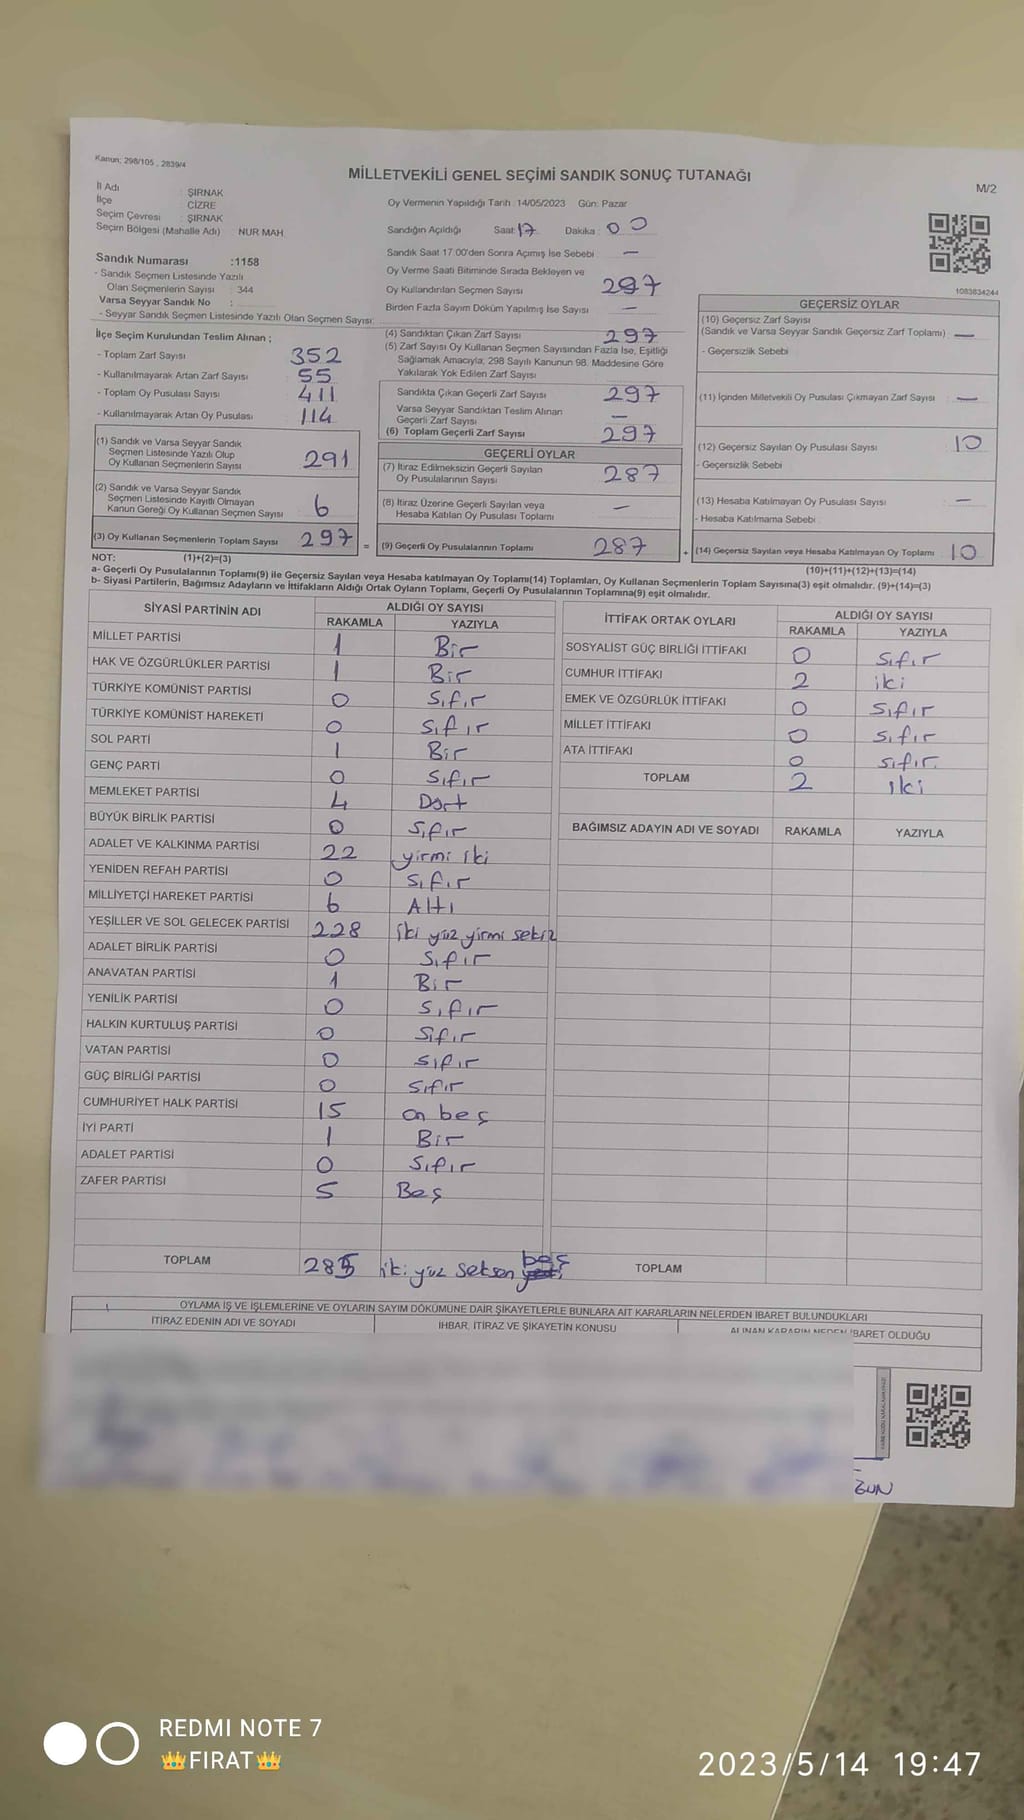 Kanun; 298/105 , 2839/4
MİLLETVEKİLİ GENEL SEÇİMİ SANDIK SONUÇ TUTANAĞI
M/2
İl Adı : ŞIRNAK
İlçe : CİZRE
Seçim Çevresi : ŞIRNAK
Seçim Bölgesi (Mahalle Adı) : NUR MAH.
Sandık Numarası :1158
- Sandık Seçmen Listesinde Yazılı
Olan Seçmenlerin Sayısı : 344
Varsa Seyyar Sandık No :
- Seyyar Sandık Seçmen Listesinde Yazılı Olan Seçmen Sayısı:
İlçe Seçim Kurulundan Teslim Alınan ;
- Toplam Zarf Sayısı : 352
- Kullanılmayarak Artan Zarf Sayısı : 55
- Toplam Oy Pusulası Sayısı : 411
- Kullanılmayarak Artan Oy Pusulası : 114
(1) Sandık ve Varsa Seyyar Sandık
Seçmen Listesinde Yazılı Olup
Oy Kullanan Seçmenlerin Sayısı 291
(2) Sandık ve Varsa Seyyar Sandık
Seçmen Listesinde Kayıtlı Olmayan
Kanun Gereği Oy Kullanan Seçmen Sayısı 6
(3) Oy Kullanan Seçmenlerin Toplam Sayısı 297
Oy Vermenin Yapıldığı Tarih :14/05/2023 Gün: Pazar
Sandığın Açıldığı Saat: 17 Dakika : 00
Sandık Saat 17:00'den Sonra Açımış İse Sebebi : —
Oy Verme Saati Bitiminde Sırada Bekleyen ve
Oy Kullandırılan Seçmen Sayısı : 297
Birden Fazla Sayım Döküm Yapılmış İse Sayısı : —
(4) Sandıktan Çıkan Zarf Sayısı : 297
(5) Zarf Sayısı Oy Kullanan Seçmen Sayısından Fazla İse, Eşitliği
Sağlamak Amacıyla; 298 Sayılı Kanunun 98. Maddesine Göre
Yakılarak Yok Edilen Zarf Sayısı :
Sandıkta Çıkan Geçerli Zarf Sayısı : 297
Varsa Seyyar Sandıktan Teslim Alınan
Geçerli Zarf Sayısı : —
(6) Toplam Geçerli Zarf Sayısı : 297
GEÇERLİ OYLAR
(7) İtiraz Edilmeksizin Geçerli Sayılan
Oy Pusulalarının Sayısı : 287
(8) İtiraz Üzerine Geçerli Sayılan veya
Hesaba Katılan Oy Pusulası Toplamı : —
= (9) Geçerli Oy Pusulalarının Toplamı : 287
1083634244
GEÇERSİZ OYLAR
(10) Geçersiz Zarf Sayısı
(Sandık ve Varsa Seyyar Sandık Geçersiz Zarf Toplamı) : —
- Geçersizlik Sebebi :
(11) İçinden Milletvekili Oy Pusulası Çıkmayan Zarf Sayısı : —
(12) Geçersiz Sayılan Oy Pusulası Sayısı : 10
- Geçersizlik Sebebi :
(13) Hesaba Katılmayan Oy Pusulası Sayısı : —
- Hesaba Katılmama Sebebi :
+ (14) Geçersiz Sayılan veya Hesaba Katılmayan Oy Toplamı : 10
NOT: (1)+(2)=(3) (10)+(11)+(12)+(13)=(14)
a- Geçerli Oy Pusulalarının Toplamı(9) ile Geçersiz Sayılan veya Hesaba katılmayan Oy Toplamı(14) Toplamları, Oy Kullanan Seçmenlerin Toplam Sayısına(3) eşit olmalıdır. (9)+(14)=(3)
b- Siyasi Partilerin, Bağımsız Adayların ve İttifakların Aldığı Ortak Oyların Toplamı, Geçerli Oy Pusulalarının Toplamına(9) eşit olmalıdır.
SİYASİ PARTİNİN ADI ALDIĞI OY SAYISI
RAKAMLA YAZIYLA
MİLLET PARTİSİ 1 Bir
HAK VE ÖZGÜRLÜKLER PARTİSİ 1 Bir
TÜRKİYE KOMÜNİST PARTİSİ 0 Sıfır
TÜRKİYE KOMÜNİST HAREKETİ 0 Sıfır
SOL PARTİ 1 Bir
GENÇ PARTİ 0 Sıfır
MEMLEKET PARTİSİ 4 Dört
BÜYÜK BİRLİK PARTİSİ 0 Sıfır
ADALET VE KALKINMA PARTİSİ 22 yirmi iki
YENİDEN REFAH PARTİSİ 0 Sıfır
MİLLİYETÇİ HAREKET PARTİSİ 6 Altı
YEŞİLLER VE SOL GELECEK PARTİSİ 228 iki yüz yirmi sekiz
ADALET BİRLİK PARTİSİ 0 Sıfır
ANAVATAN PARTİSİ 1 Bir
YENİLİK PARTİSİ 0 Sıfır
HALKIN KURTULUŞ PARTİSİ 0 Sıfır
VATAN PARTİSİ 0 Sıfır
GÜÇ BİRLİĞİ PARTİSİ 0 Sıfır
CUMHURİYET HALK PARTİSİ 15 on beş
İYİ PARTİ 1 Bir
ADALET PARTİSİ 0 Sıfır
ZAFER PARTİSİ 5 Beş
TOPLAM 285 iki yüz seksen beş
İTTİFAK ORTAK OYLARI ALDIĞI OY SAYISI
RAKAMLA YAZIYLA
SOSYALİST GÜÇ BİRLİĞİ İTTİFAKI 0 Sıfır
CUMHUR İTTİFAKI 2 iki
EMEK VE ÖZGÜRLÜK İTTİFAKI 0 Sıfır
MİLLET İTTİFAKI 0 Sıfır
ATA İTTİFAKI 0 Sıfır
TOPLAM 2 iki
BAĞIMSIZ ADAYIN ADI VE SOYADI RAKAMLA YAZIYLA
TOPLAM
OYLAMA İŞ VE İŞLEMLERİNE VE OYLARIN SAYIM DÖKÜMÜNE DAİR ŞİKAYETLERLE BUNLARA AİT KARARLARIN NELERDEN İBARET BULUNDUKLARI
İTİRAZ EDENİN ADI VE SOYADI İHBAR, İTİRAZ VE ŞİKAYETİN KONUSU ALINAN KARARIN NEDEN İBARET OLDUĞU
REDMI NOTE 7
👑FIRAT👑
2023/5/14 19:47